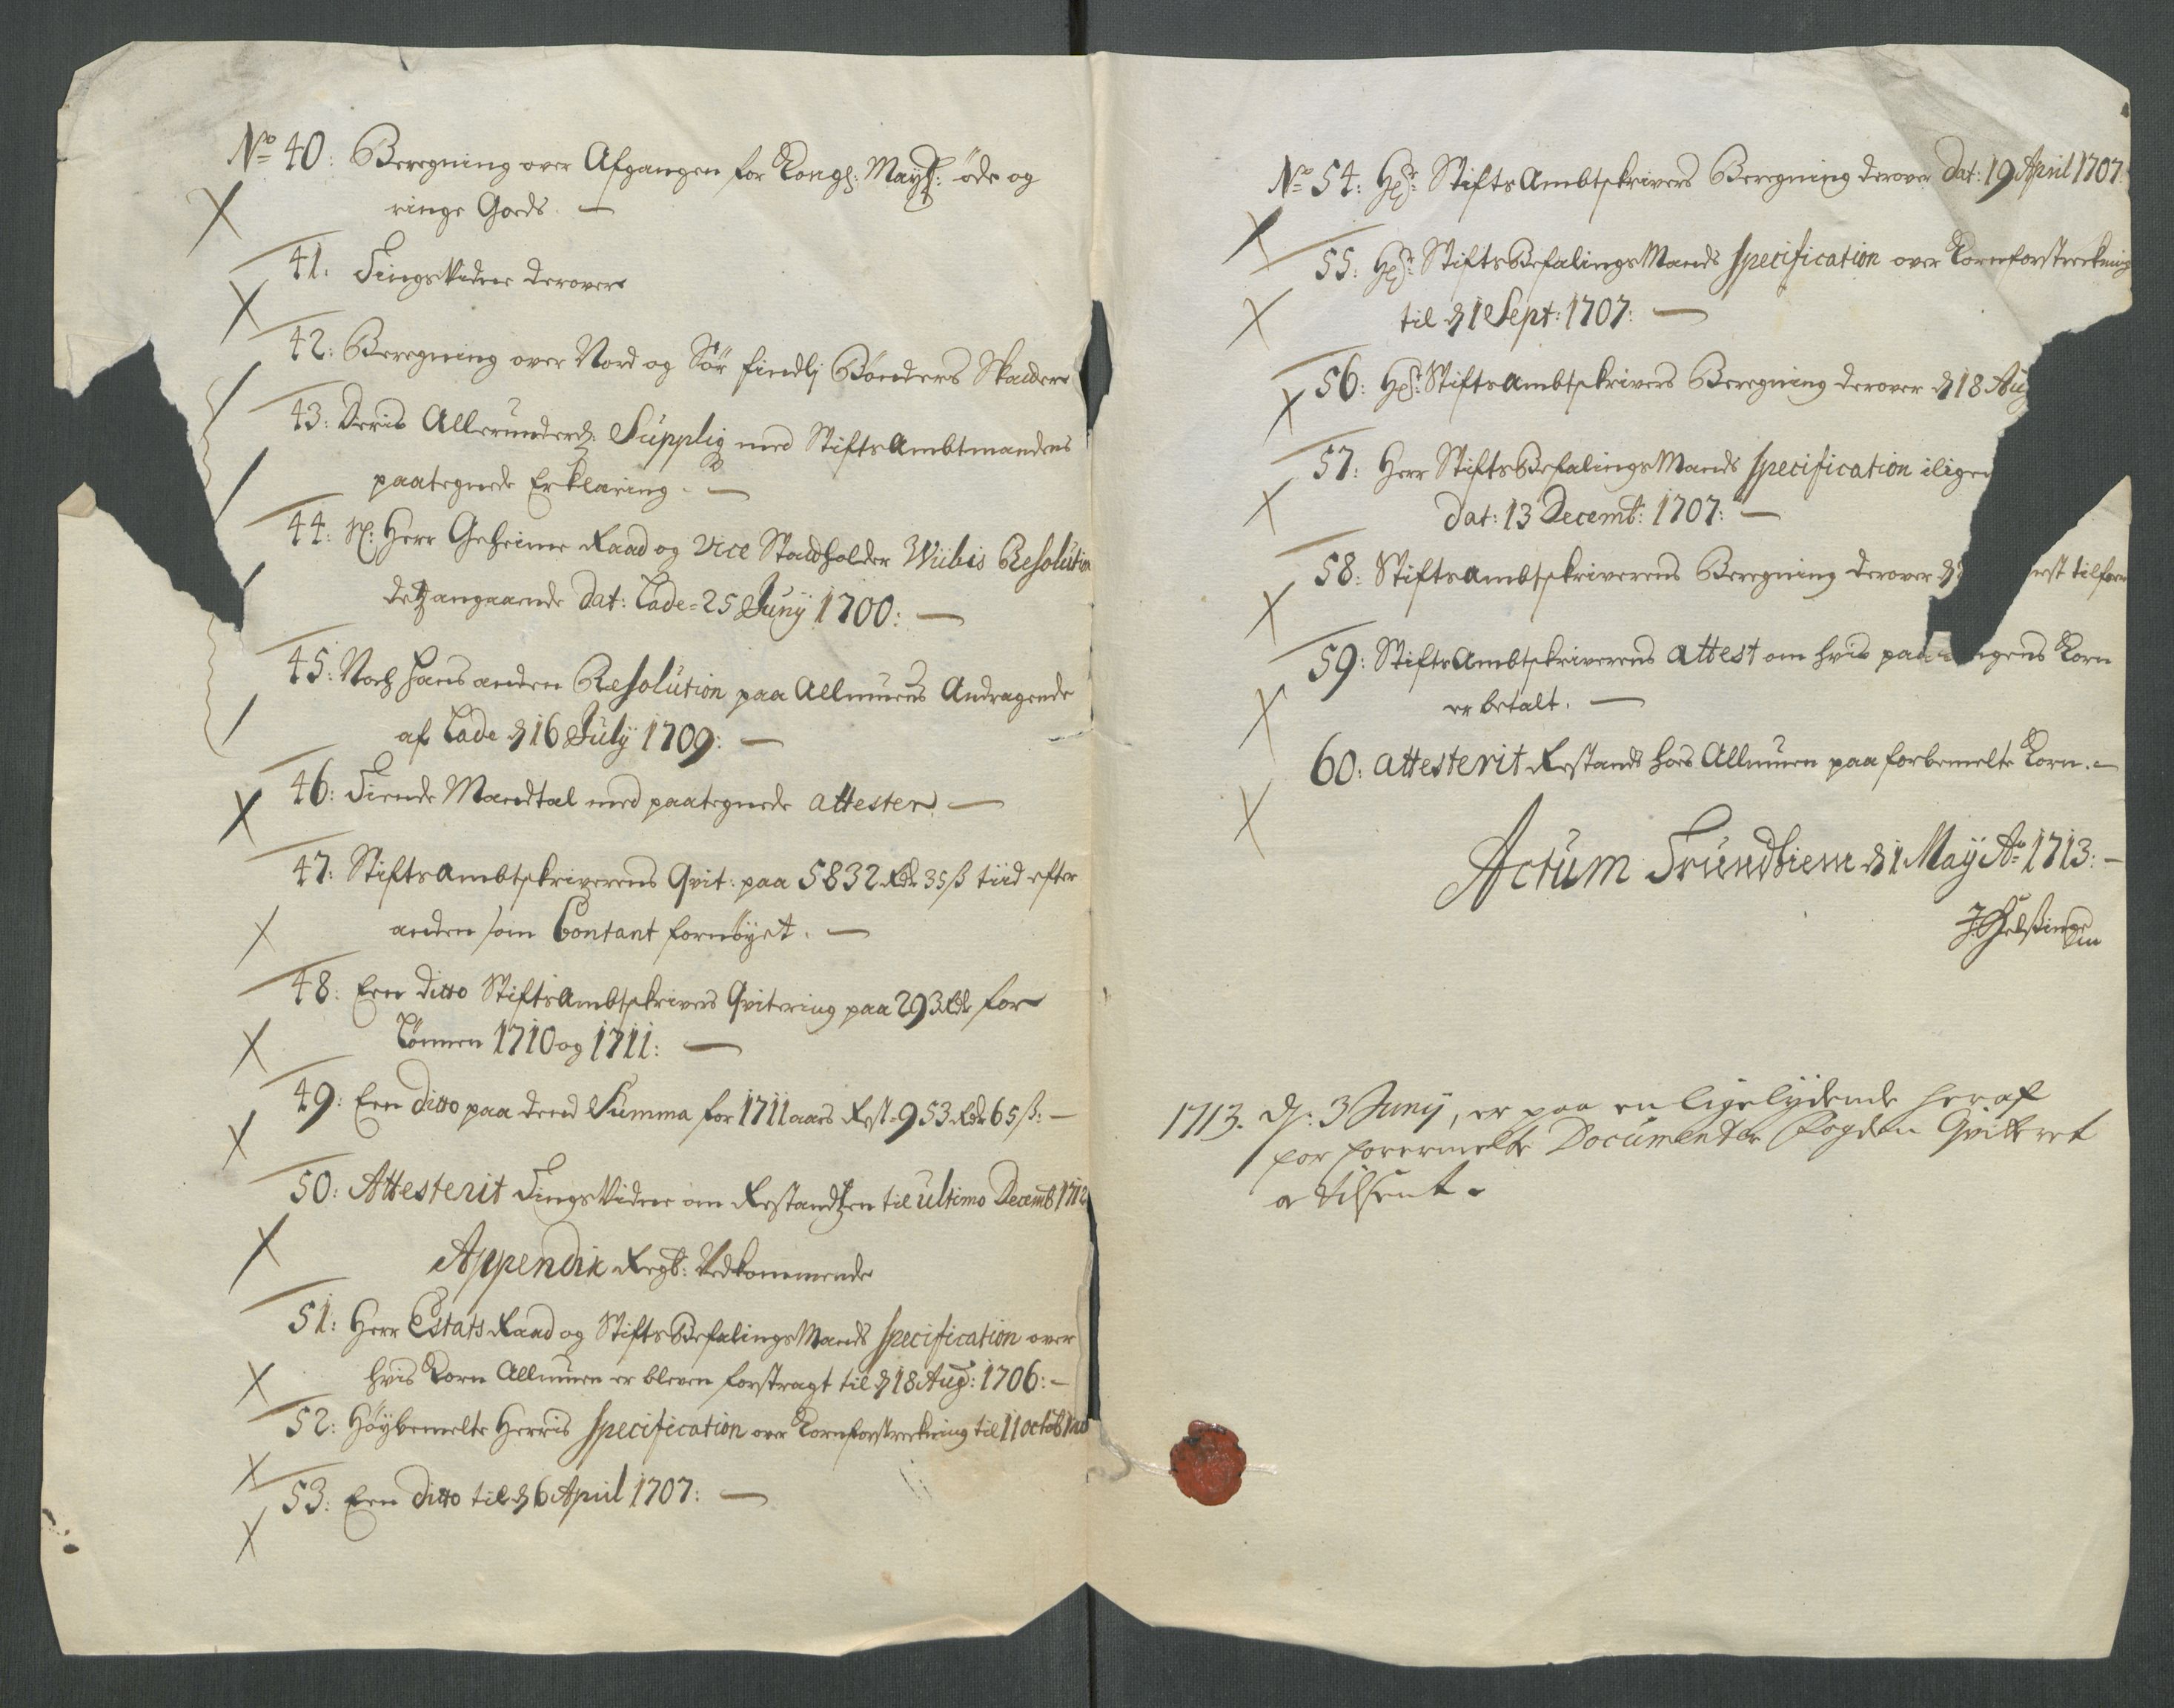 No 40: Beregning over Afgangen for Kongl: Mayts: öde og
ringe Goeds. —
41: Tings Vidne derover
42: Beregning over Nord og Sör findlj Bönders Skader
43: Deris Allerunderd: Supplig med StiftsAmbtmandens
paategnede Erklæring. —
44: Sl: Herr Geheime Raad og Vice Stadtholder Wiibis Resolution
detz angaaende dat: Lade = 25 Junij 1700: —
45: Noch hans anden Resolution paa Allmuens Andragende
af Lade d 16 Julij 1709: —
46: Tiende Mandtal med paategnede attester —
47: StiftsAmbtskriverens Qvit: paa 5832 Rdr 35 ß tiid efter
anden som Contant fornöyet. —
48: Een ditto StiftsAmbtskrivers Qvitering paa 293 Rdr for
Lönnen 1710 og 1711: —
49: Een ditto paa deend Summa for 1711 aars Rest = 953 Rdr 65 ß: —
50: Attesterit Tings Vidne om Restandtzen til ultimo Decemb 1712
Appendix Regb: Vedkommende
51: Herr Estats Raad og StiftsBefalingsMands specification over
hvis Korn Allmuen er bleven forstragt til d 18 Aug: 1706: —
52: Höybemelte Herris specification over Kornforstreckning til 11 octob
53: Een ditto til d 6 April 1707: —
No 54: Hr StiftsAmbtskrivers Beregning derover dat: 19 April 1707:
55: Hr StiftsBefalingsMands specification over Kornforstreckning
til d 1 Sept: 1707: —
56: Hr StiftsAmbtskrivers Beregning derover d 18 Aug
57: Herr StiftsBefalingsMands specification
dat: 13 Decemb: 1707: —
58: StiftsAmbtskriverens Beregning derover d
59: StiftsAmbtskriverens attest om hvis paa Korn
er betalt. —
60: attesterit Restands hos Allmuen paa forbemelte Korn. —
Actum Trundhiem d 1 Maij Ao 1713: —
1713. d: 3 Junij, er paa en ligelijdende heraf
for forermelte Documenter Fogden Qvitteret